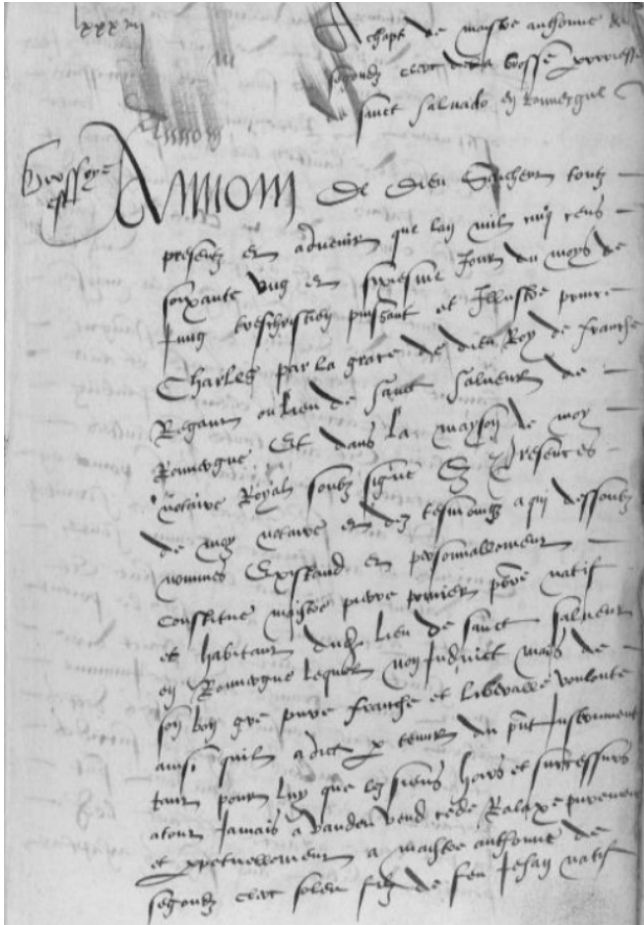 lxxxiiij
Achapt de maistre anthonne de
segondz clerc de la bosse
sainct salvado en Rouuergue
Au nom
Grossoye est
Au nom de dieu Saichent toutz
presentz et advenir que lan mil cinq cens
soixante ung et sixiesme Jour du moys de
Jung treschrestien puissant et Illustre prince
Charles par la grace de dieu Roy de france
Regnant ou lieu de sainct salueur de
Rouuergue Et dans la mayson de moy
notaire Royal soubz signe En presences
de moy notaire et des tesmoingz a qui dessoubz
nommes Existand et personnallement
constitue maistre pierre prbre natif
et habitant dud lieu de sainct salueur
en Rouuergue lequel non Induict mais de
son bon gre pure franche et liberalle voulonte
ainsi quil a dict p teneur du pnt Instrument
tant pour luy que les siens hoirs et successurs
atout Jamais a vandeu vend cede Ralaxe purement
et ppetuellement a maistre anthonne de
segondz clerc solen filz de feu Jehan natif